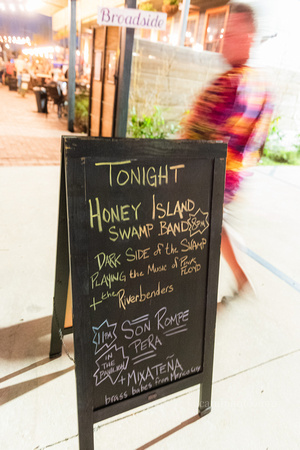 Broadside
TONIGHT
HONEY ISLAND
SWAMP BAND
8PM
DARK SIDE OF THE SWAMP
PLAYING THE MUSIC OF PINK
FLOYD
+ the Riverbenders
11PM
IN THE
PAVILION
SON ROMPE
PERA
+ MIXATEÑA
brass babes from Mexico City